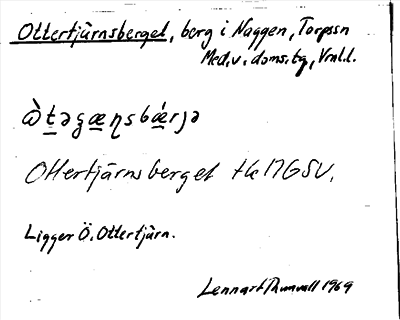 Ottertjärnsberget, berg i Naggen, Torpssn
Med.v. doms.tg, Vrnl.l.
Ottertjärnsberget tk 17GSV.
Ligger Ö. Ottertjärn.
Lennart 1969